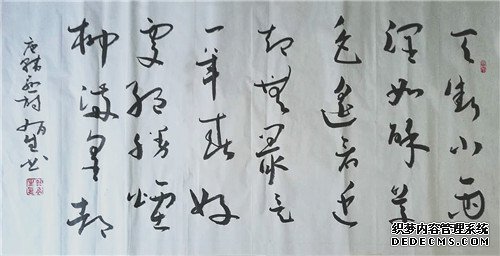 天街小雨
潤如酥草
色遥看近
却無最是
一年春好
處絕勝煙
柳滿皇都
唐韓愈詩 书
织梦内容管理系统
DEDECMS.COM